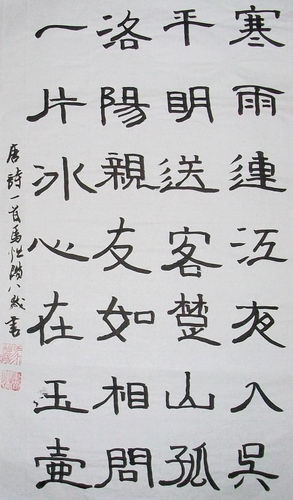 寒雨連江夜入吳
平明送客楚山孤
洛陽親友如相問
一片冰心在玉壺
唐詩一首馬 八歲書